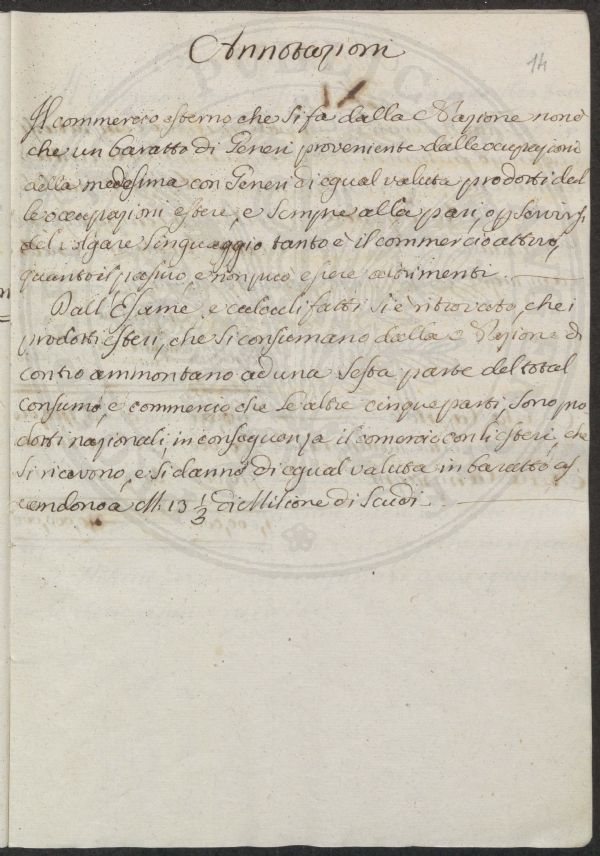 Annotazioni
14
Il commercio esterno che si fa dalla Nazione non è
che un baratto di Generi proveniente dalle occupazioni
della medesima con Generi di egual valuta prodotti dal
le occupazioni estere, e sempre alla pari, o p servirsi
del volgare linguaggio tanto è il commercio attivo,
quanto il passivo, e non può essere altrimenti.
Dall'Esame, e calcoli fatti si è ritrovato, che i
prodotti esteri, che si consumano dalla Nazione di
contro ammontano ad una sesta parte del total
consumo, e commercio che le altre cinque parti, sono pro
dotti nazionali, in conseguenza il comercio con li esteri, che
si ricevono, e si danno di egual valuta in baratto as
cendono a 13 1/3 di Milione di Scudi.